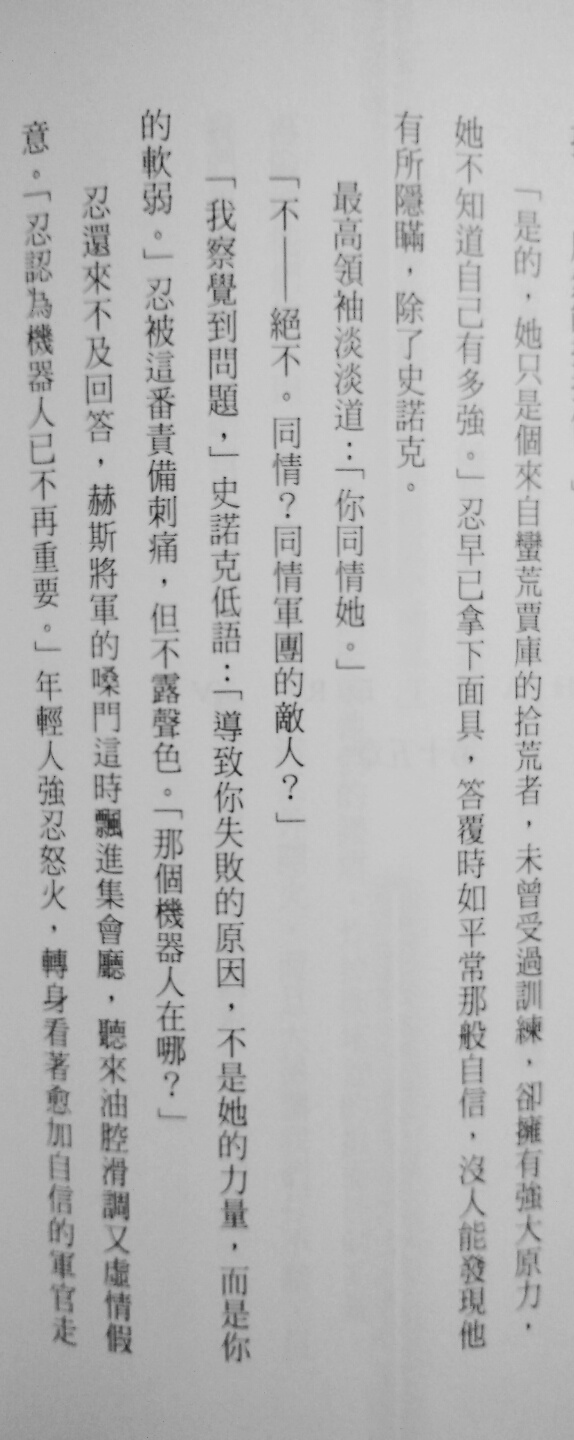 「是的，她只是個來自蠻荒賈庫的拾荒者，未曾受過訓練，卻擁有強大原力，
她不知道自己有多強。」忍早已拿下面具，答覆時如平常那般自信，沒人能發現他
有所隱瞞，除了史諾克。
最高領袖淡淡道：「你同情她。」
「不——絕不。同情？同情軍團的敵人？」
「我察覺到問題，」史諾克低語：「導致你失敗的原因，不是她的力量，而是你
的軟弱。」忍被這番責備刺痛，但不露聲色。「那個機器人在哪？」
忍還來不及回答，赫斯將軍的嗓門這時飄進集會廳，聽來油腔滑調又虛情假
意。「忍認為機器人已不再重要。」年輕人強忍怒火，轉身看著愈加自信的軍官走